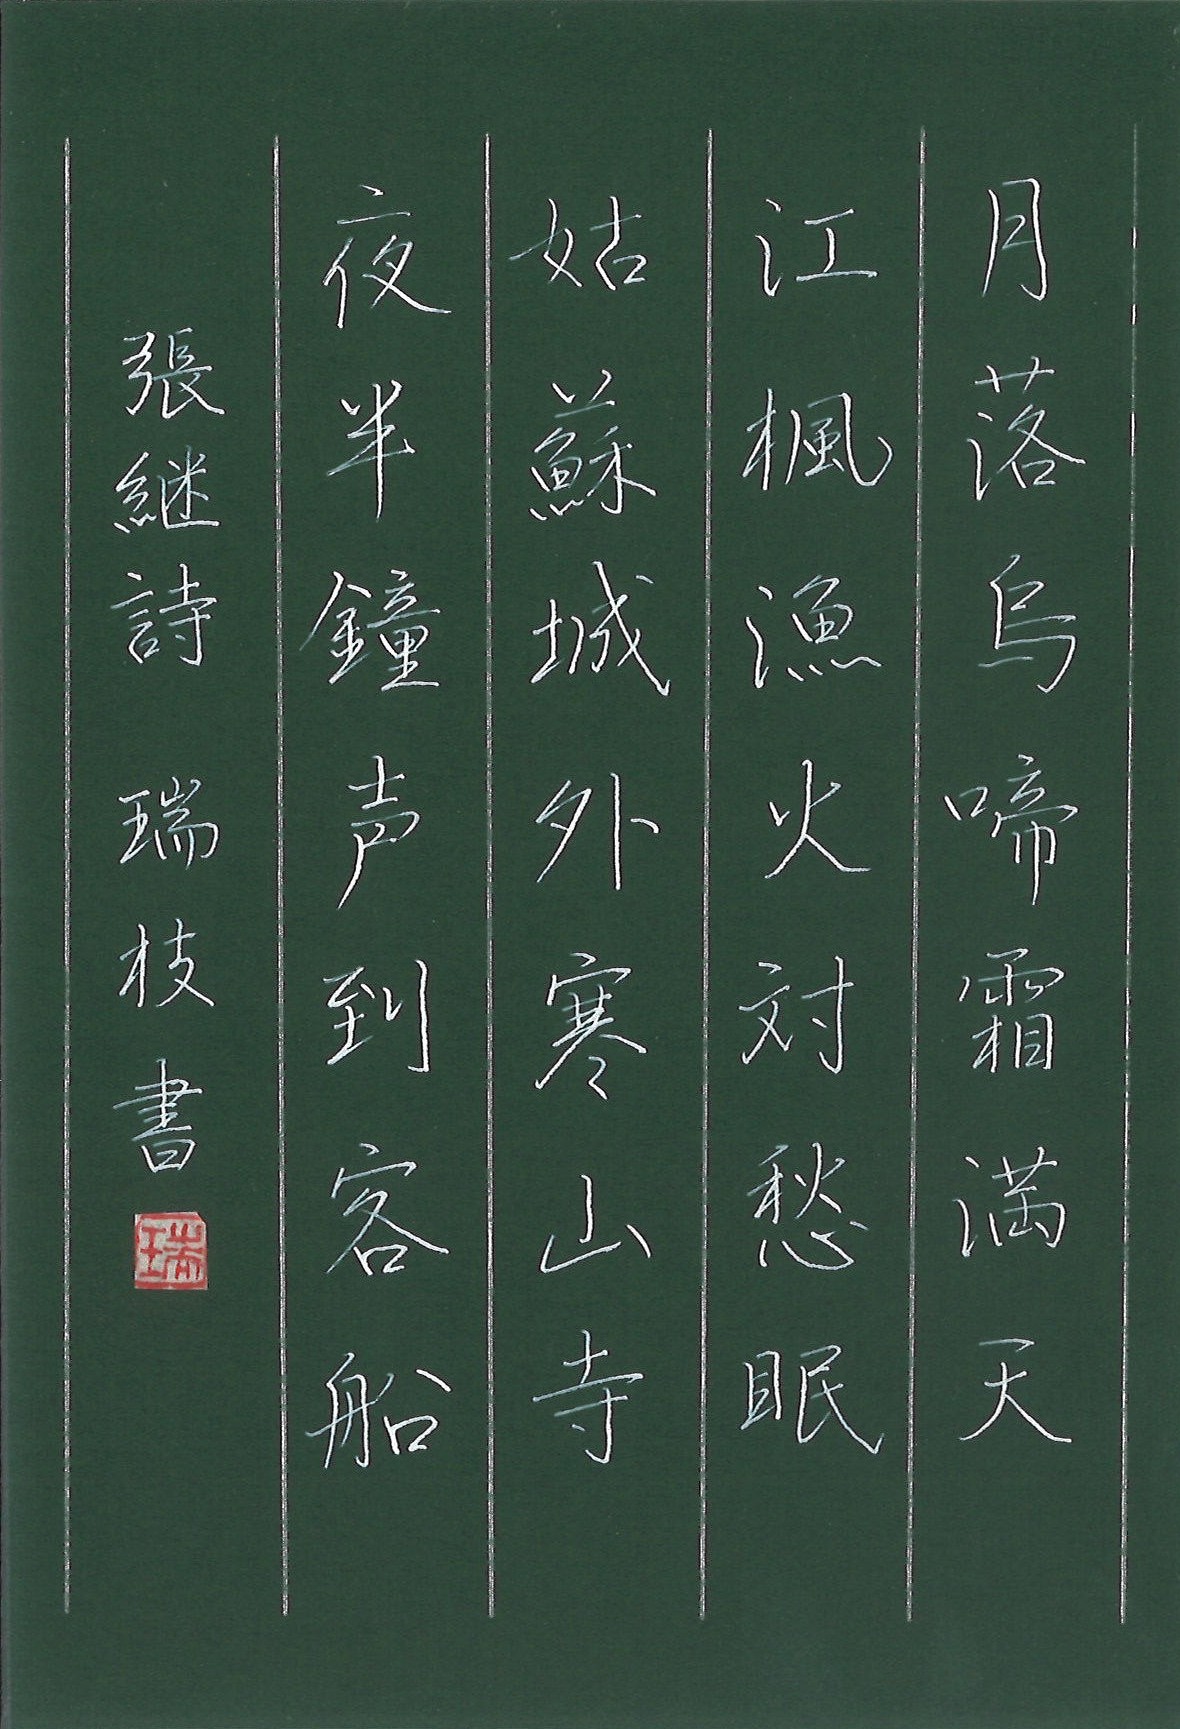 月落烏啼霜満天
江楓漁火対愁眠
姑蘇城外寒山寺
夜半鐘声到客船
張継詩 瑞枝書
瑞